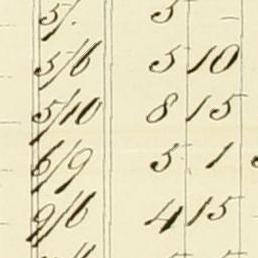 5/. 5 –
5/6 5 10
5/10 8 15
6/9 5 1
9/6 4 15